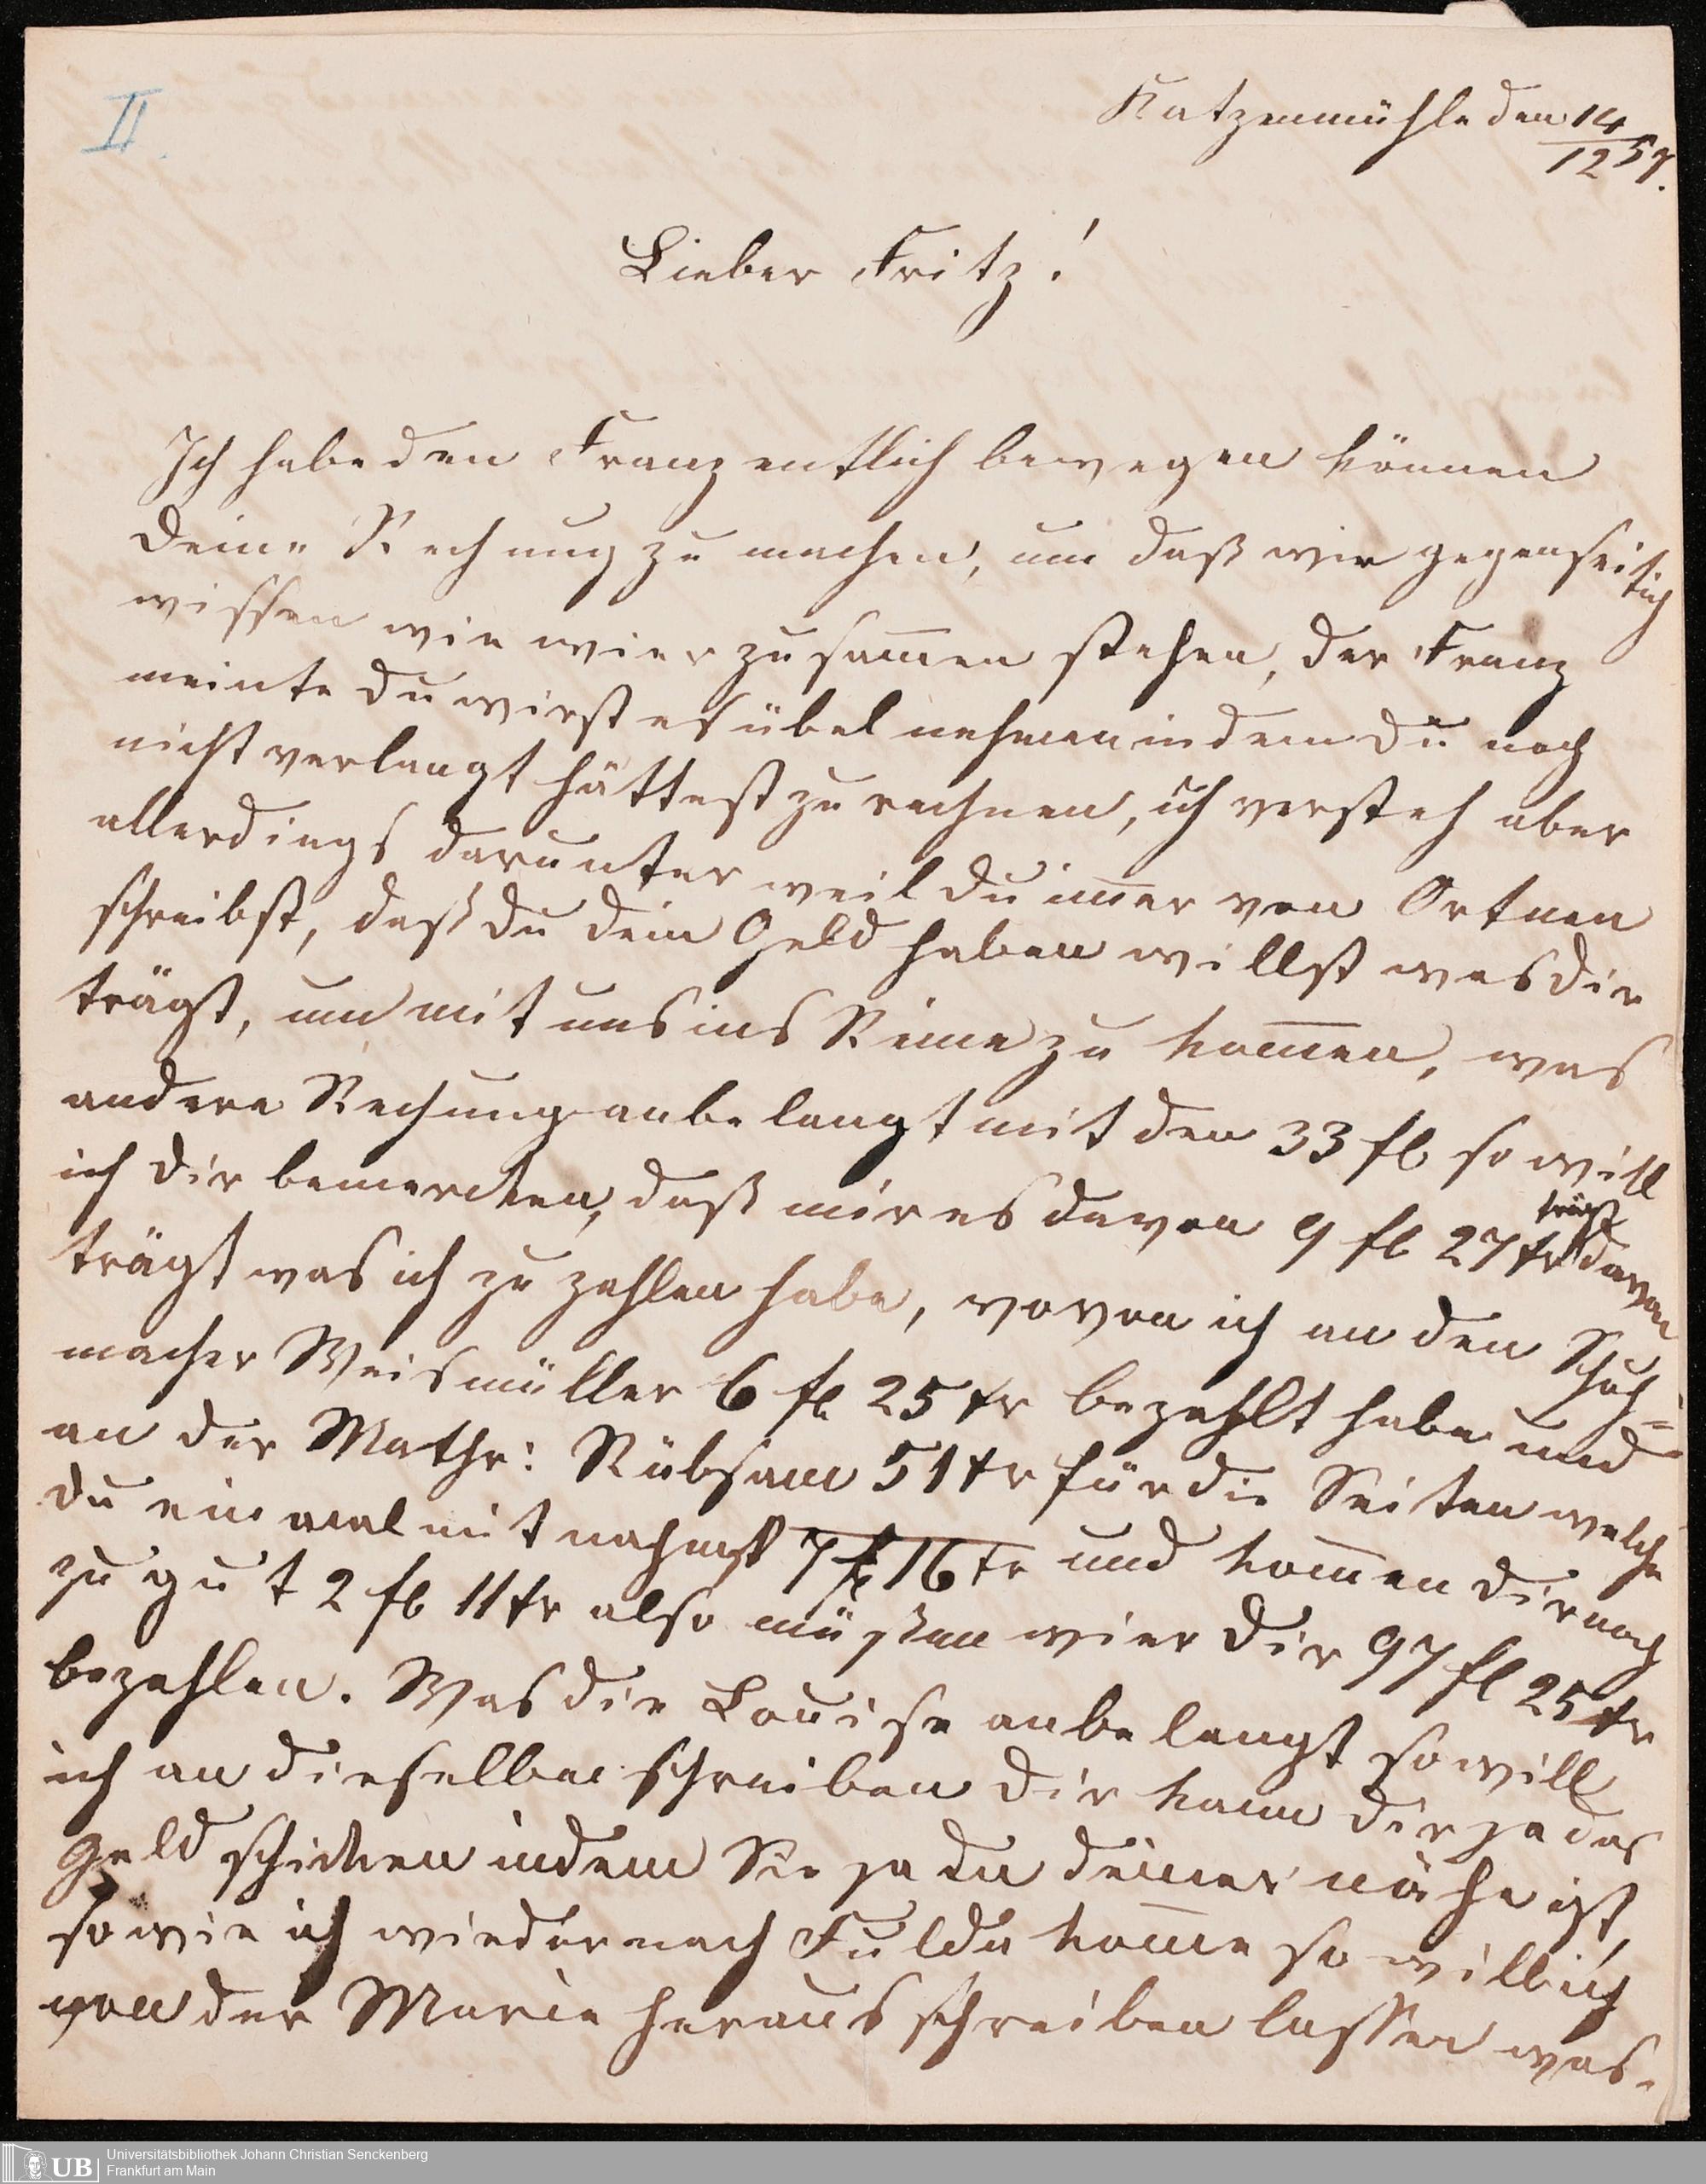 II.
Katzenmühle den 14/12 57.
Lieber Fritz!
Ich habe den Franz entlich bewegen können
deine Rechnung zu machen, um daß wir gegenseitich
wissen wie wier zusam̄en stehen, der Franz
meinte du wirst es übel nehmen indem du noch
nicht verlangt hättest zu rechnen, ich versteh aber
allerdings darunter weil du im̄er von Ortnen
schreibst, daß du dein Geld haben willst was dir
trägt, um mit uns ins Reine zu kom̄en, was
andere Rechnung anbelangt mit den 33 fl so will
ich dir bemercken, daß mir es davon 9 fl 27 kr trägt davon
trägt was ich zu zahlen habe, wovon ich an den Schuh=
macher Weismüller 6 fl 25 kr bezahlt habe und
an der Mathr: Rübsam 51 kr für die Seiten welche
du ein mal mit nahmst 7 fl 16 kr und kom̄en dir noch
zu gut 2 fl 11 kr also müßen wier dir 97 fl 25 kr
bezahlen. Was die Louise anbelangt so will
ich an dieselbe schreiben die kann dir ja das
Geld schicken indem Sie ja in deiner nähe ist,
so wie ich wieder nach Fulda kom̄e so will ich
von der Marie heraus schreiben lassen was
Universitätsbibliothek Johann Christian Senckenberg
Frankfurt am Main
UB